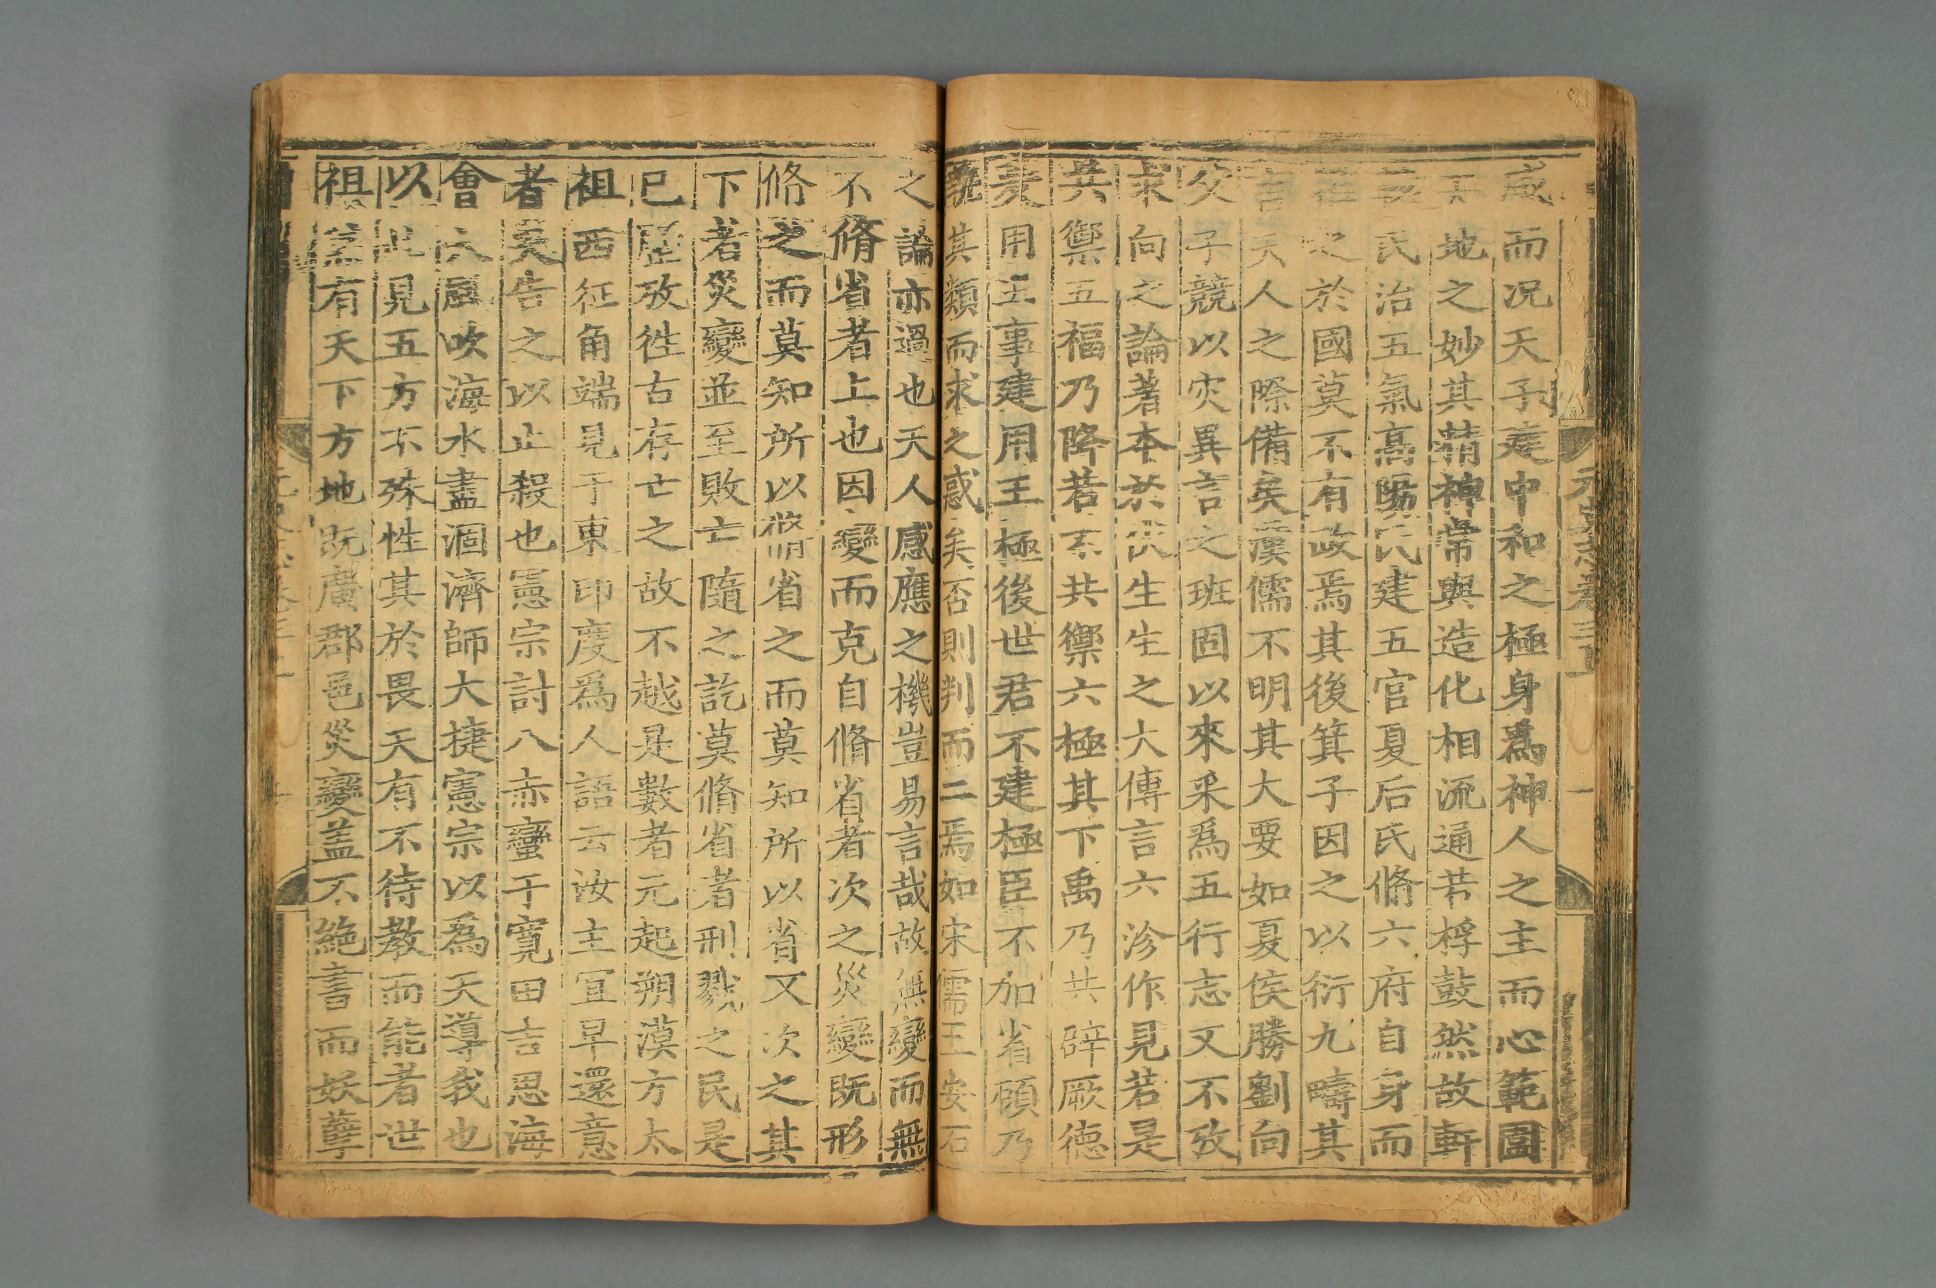 感而况天子建中和之極身爲神人之主而心範圍
天地之妙其精神常與造化相流通若桴鼓然故軒
轅氏治五氣高陽氏建五官夏后氏脩六府自身而
推之於國莫不有政焉其後箕子因之以衍九疇其
言天人之際備矣漢儒不明其大要如夏侯勝劉向
父子競以灾異言之班固以來采爲五行志又不攷
求向之論著本於伏生生之大傳言六沴作見若是
共禦五福乃降若不共禦六極其下禹乃共辟厥德
爰用五事建用王極後世君不建極臣不加省顧乃
執其類而求之惑矣否則判而二焉如宋儒王安石
之論亦過也天人感應之機豈易言哉故無變而無
不脩省者上也因變而克自脩省者次之災變既形
脩之而莫知所以脩省之而莫知所以省又次之其
下者災變並至敗亡隨之訖莫脩省者刑戮之民是
已歷攷徃古存亡之故不越是數者元起朔漠方太
祖西征角端見于東印度爲人語云汝主宜早還意
者天告之以止殺也憲宗討八赤蠻于寬田吉思海
會大風吹海水盡涸濟師大捷憲宗以爲天導我也
以此見五方不殊性其於畏天有不待教而能者世
祖兼有天下方地既廣郡邑災變盖不絶書而妖孽
元史志卷三上